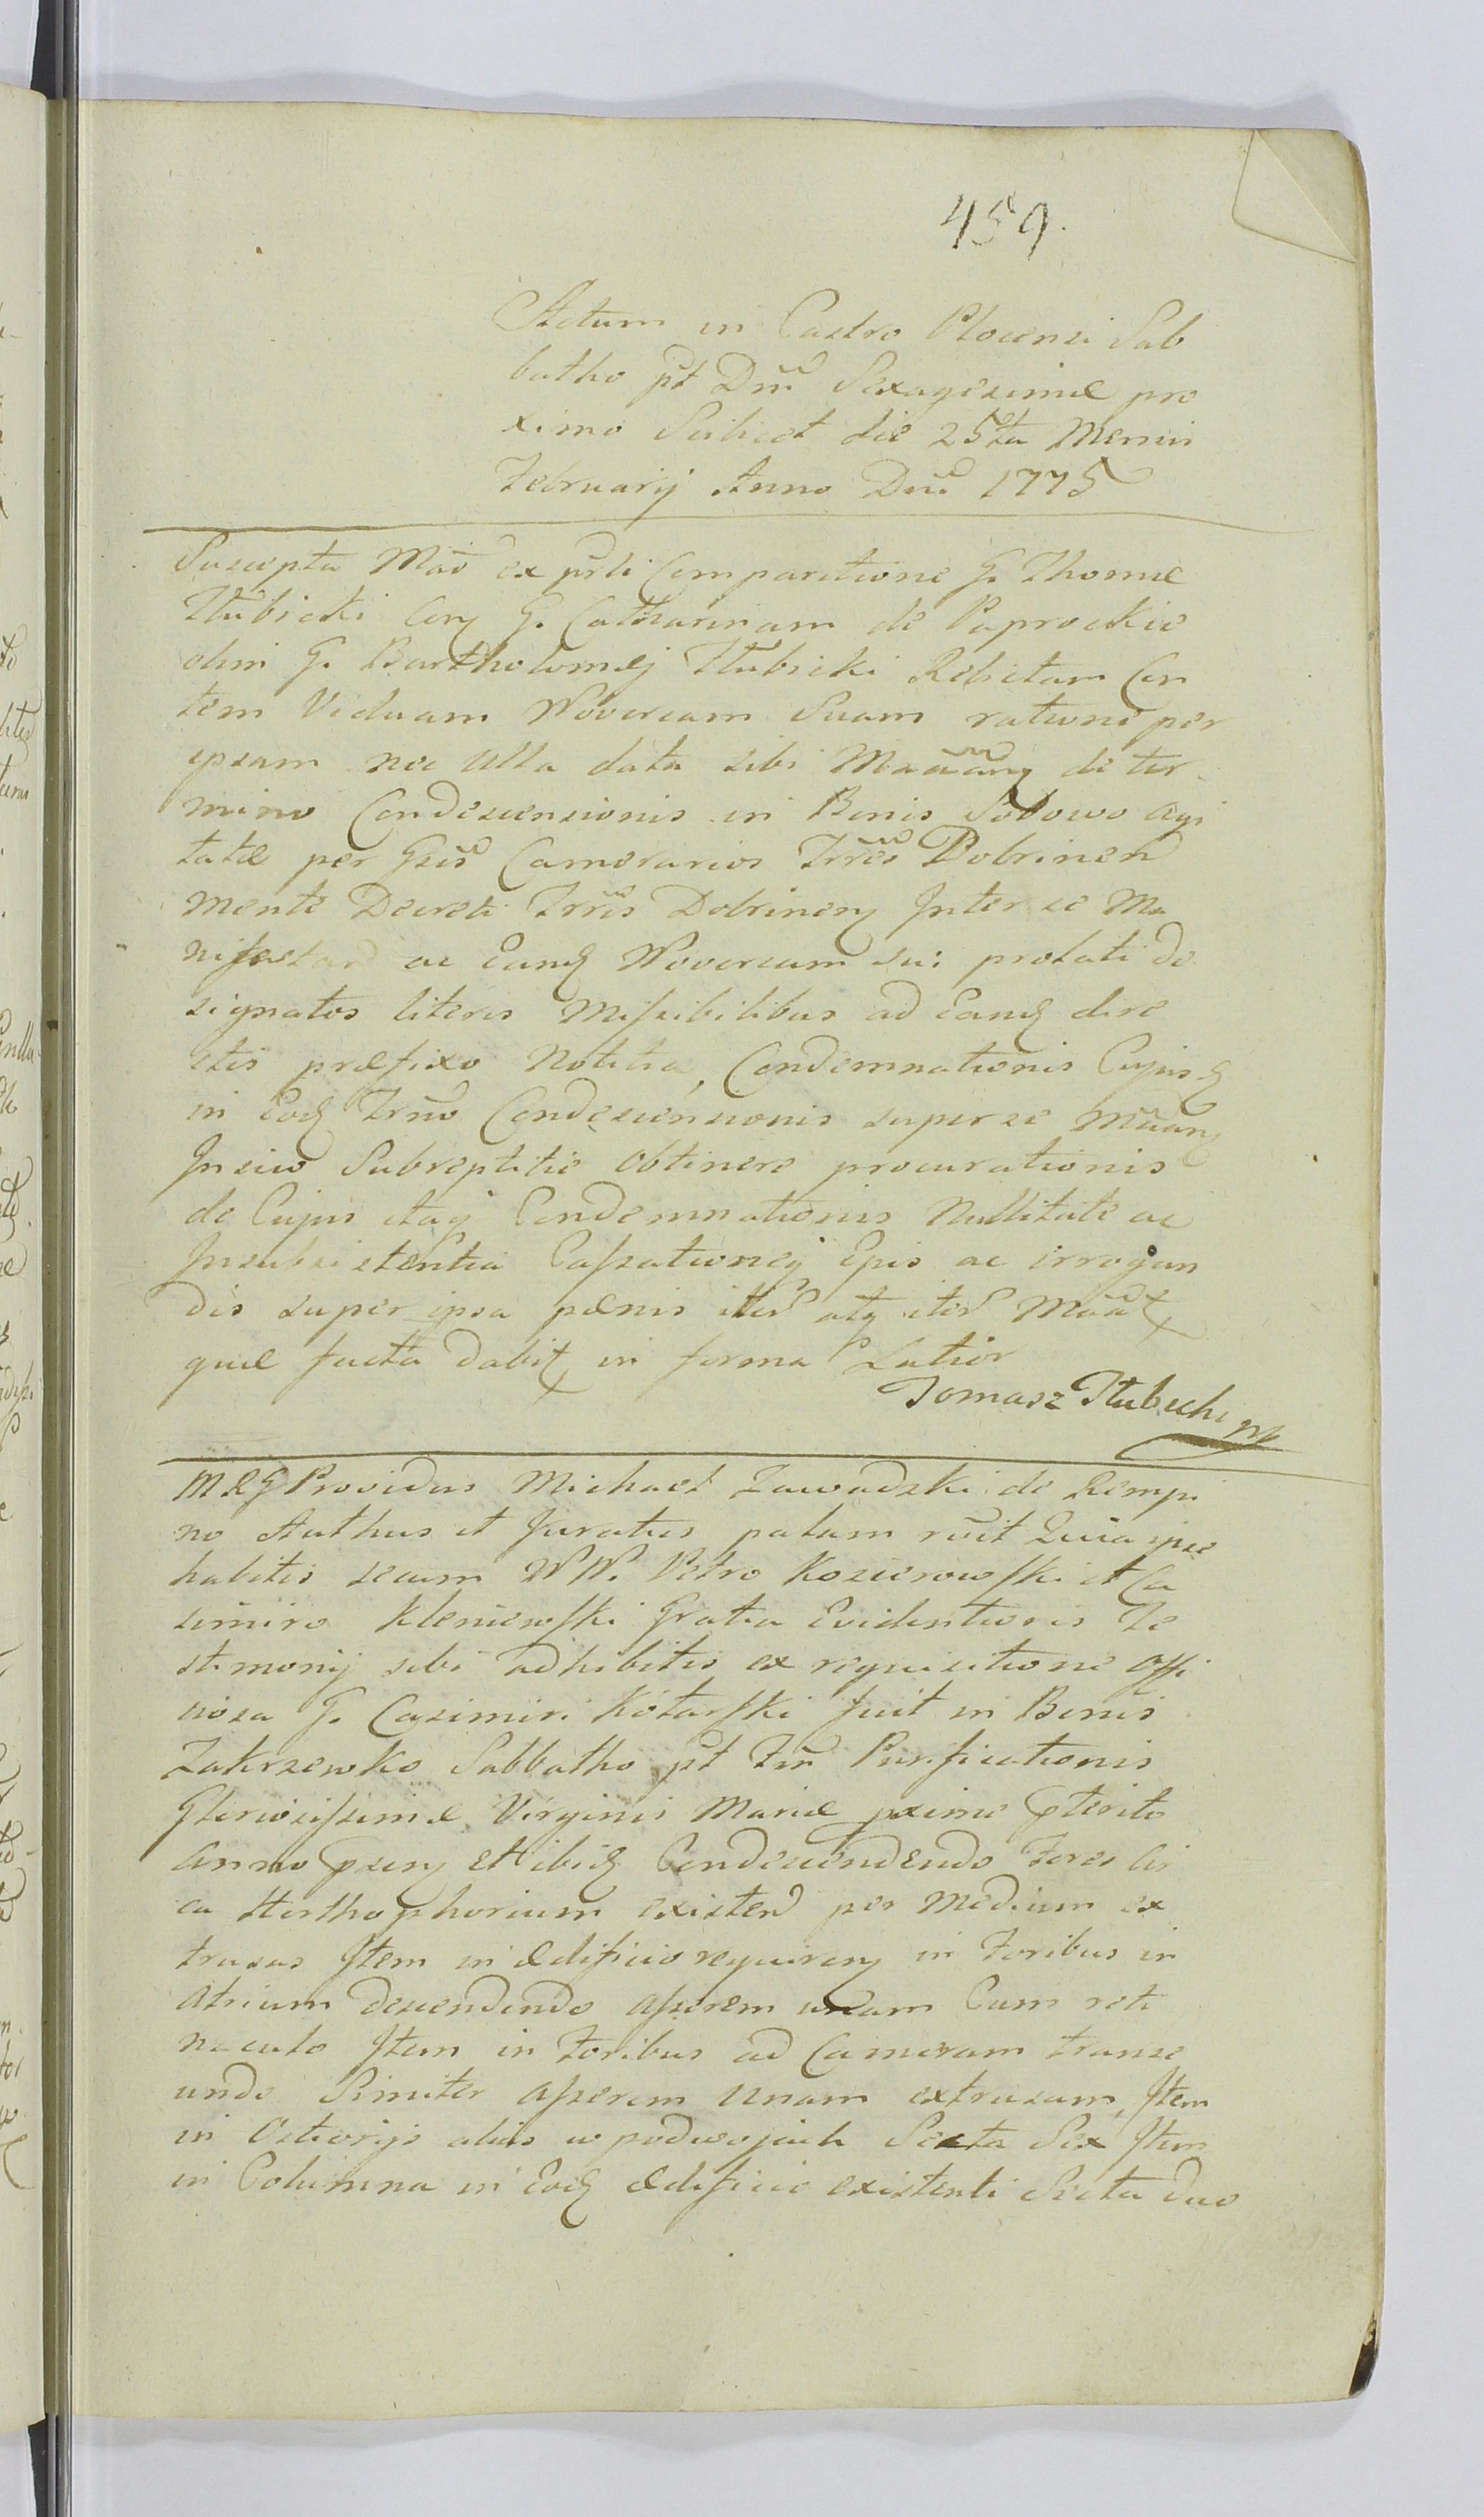 459.
Actum in Castro Plocensi Sab
batho pt Dm̃ Sexagesimæ pro
ximo Scilicet die 25ta Mensis
Februarij Anno Dn̄i 1775
Suscepta Mão ex prsti Comparitione G. Thomæ
Itubicki Cerg G. Catharinam de Paprockie
olim G. Bartholomæj Itubicki Relictam Con
tem Viduam Novercam Suam ratione per
ipsam nec Ulla data sibi de ter
mino Condescensionis in Bonis Sobowo agi
tatæ per Camerarios Trres Dobrinen
mente Decreti Trris Dobrinen Inter se Ma
nifestand ac Eand Novercam sui prolati de
signatos literis Missibilibus ad Eand dire
ctis præfixo Notitia, Condemnationis Cujusd
in Eod Trno Condescensionis super se
Inscio Subreptitie obtinere procurationis
de Cujus itaq Condemnationis Nullitate ac
Insubsistentia Cassationeq Ejus ac irrogan
dis super ipsa pænis iter atq iter Mãat
quæ facta dabit in forma Latior
Tomasz Itubicki mp
MRG Providus Michael Zawadzki de Rempi
no Authus et Juratus palam rc̃it Quia ipse
habitis secum NN. Petro Kosicrowski et Ca
simiro Kleniewski Gratia Evidentioris Te
stimonij sibi adhibitis ex requisitione offi
ciosa G. Casimiri Kotarski fuit in Bonis
Zakrzewko Sabbatho pt Fm̃ Purificationis
Gloriosissimæ Virginis Mariæ pximo pterito
Anno psen et ibid Condescendendo Fores cir
ca Horthophorium existen per Medium ex
trusas Item in Ædificio requiren in Foribus in
Atrium descendendo asserem unam Cum reti
naculo Item in Foribus ad Cameram transe
undo Simiter asserem Unam extrusam, Item
in Ostiorijs alias w podwojach Secta Sex Item
in Columna in Eod Ædificio existenti Secta duo